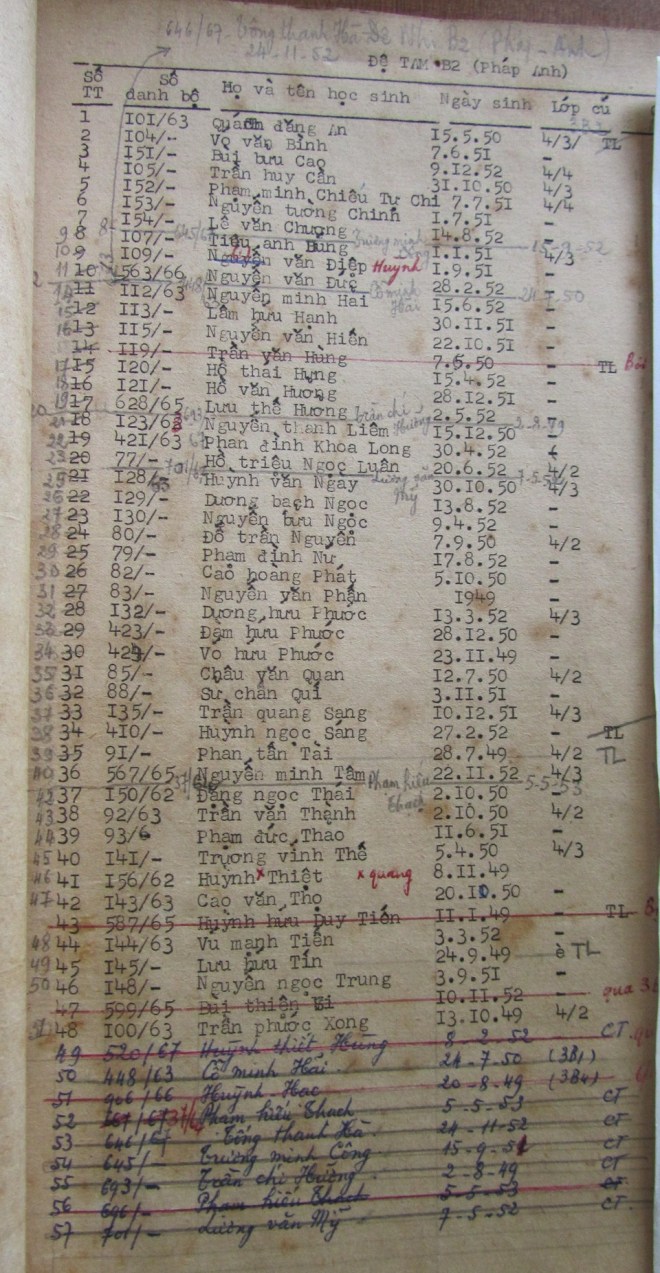 646/67 - Tống thanh Hà Đệ Nhị B2 (Pháp - Anh)
24-11-52
Đệ TAM B2 (Pháp Anh)
Số TT Số danh bộ Họ và tên học sinh Ngày sinh Lớp cũ
1 I0I/63 Quách đăng An I5.5.50 4/3/ TL
2 I04/- Võ văn Bình 7.6.5I -
3 I5I/- Bùi bưu Cao 9.I2.52 4/4
4 I05/- Trần huy Cần 3I.I0.50 4/3
5 I52/- Phạm minh Chiếu Tự Chi 7.7.5I 4/4
6 I53/- Nguyễn tường Chinh I.7.5I -
7 I54/- Lê văn Chương I4.8.52 -
8 I07/- Tiêu anh Dũng I.I.5I 4/3
645/67 Trương minh 15-9-52
9 I09/- Nguyễn văn Điệp Huỳnh I.9.5I -
10 563/66 Nguyễn văn Đức 28.2.52 -
Cô minh Hải 24-7-50
11 II2/63 Nguyễn minh Hai I5.6.52 -
12 II3/- Lâm hưu Hạnh 30.II.5I -
13 II5/- Nguyễn văn Hiến 22.I0.5I -
14 II9/- Trần văn Hùng 7.5.50 - TL
15 I20/- Hồ thái Hưng I5.4.52 -
16 I2I/- Hồ văn Hương 28.I2.5I -
17 628/65 Lưu thế Hương 2.5.52 -
693 Trần chí Hường 2-8-49
18 I23/63 Nguyễn thanh Liêm I5.I2.50 -
19 42I/63 Phan đình Khoa Long 30.4.52
20 77/- Hồ triệu Ngọc Luân 20.6.52 4/2
701/67 Lương văn Mỹ 7-5-52
21 I28/63 Huỳnh văn Ngay 30.I0.50 4/3
22 I29/- Dương bạch Ngọc I3.8.52 -
23 I30/- Nguyễn bưu Ngọc 9.4.52 -
24 80/- Đỗ trần Nguyên 7.9.50 4/2
25 79/- Phạm đình Nư I7.8.52 -
26 82/- Cao hoàng Phát 5.I0.50 -
27 83/- Nguyễn văn Phận I949 -
28 I32/- Dương hưu Phước I3.3.52 4/3
29 423/- Đàm hưu Phước 28.I2.50 -
30 424/- Võ hưu Phước 23.II.49 -
31 85/- Châu văn Quan I2.7.50 4/2
32 88/- Sử chân Quí 3.II.5I -
33 I35/- Trần quang Sang I0.I2.5I 4/3
34 4I0/- Huỳnh ngọc Sáng 27.2.52 - TL
35 9I/- Phan tấn Tài 28.7.49 4/2 TL
36 567/65 Nguyễn minh Tâm 22.II.52 4/3
Phạm hiếu Thạch 5-5-53
37 I50/62 Đặng ngọc Thái 2.I0.50 -
38 92/63 Trần văn Thành 2.I0.50 4/2
39 93/6 Phạm đức Thao II.6.5I -
40 I4I/- Trương vĩnh Thế 5.4.50 4/3
41 I56/62 Huỳnh x Thiệt x quang 8.II.49
42 I43/63 Cao văn Thọ 20.I0.50 -
43 587/65 Huỳnh hưu Duy Tiến II.I.49 - TL
44 I44/63 Vu mạnh Tiến 3.3.52 -
45 I45/- Lưu hưu Tín 24.9.49 è TL
46 I48/- Nguyễn ngọc Trung 3.9.5I -
47 599/65 Bùi thiện I0.II.52 - qua
48 I00/63 Trần phước Xong I3.I0.49 4/2
49 520/67 Huỳnh thiết Hùng 8-2-52 CT
50 448/63 Cô minh Hải 24-7-50 (3B1)
51 906/66 Huỳnh Hạc 20-8-49 (3B4)
52 Phạm hiếu Thạch 5-5-53 CT
53 646/67 Tống thanh Hà 24-11-52 CT
54 645/- Trương minh 15-9-51 CT
55 693/- Trần chí Hường 2-8-49 CT
56 696/- Phạm hiếu Thạch 5-5-53 CT
57 701/- Lương văn Mỹ 7-5-52 CT